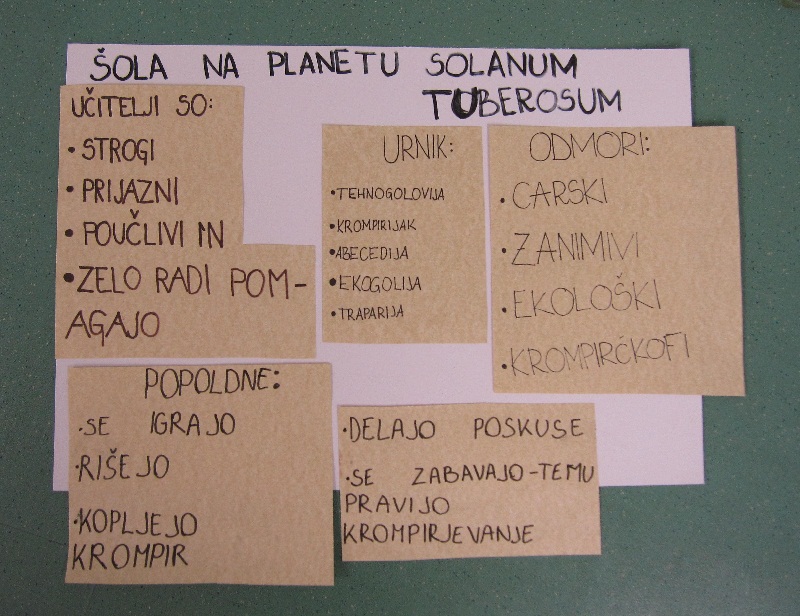 ŠOLA NA PLANETU SOLANUM
TUBEROSUM
UČITELJI SO:
• STROGI
• PRIJAZNI
• POUČLJIVI IN
• ZELO RADI POM-
AGAJO
URNIK:
• TEHNOGOLOVIJA
• KROMPIRIJAK
• ABECEDIJA
• EKOGOLIJA
• TRAPARIJA
ODMORI:
• CARSKI
• ZANIMIVI
• EKOLOŠKI
• KROMPIRČKOFI
POPOLDNE:
• SE IGRAJO
• RIŠEJO
• KOPLJEJO
KROMPIR
• DELAJO POSKUSE
• SE ZABAVAJO-TEMU
PRAVIJO
KROMPIRJEVANJE